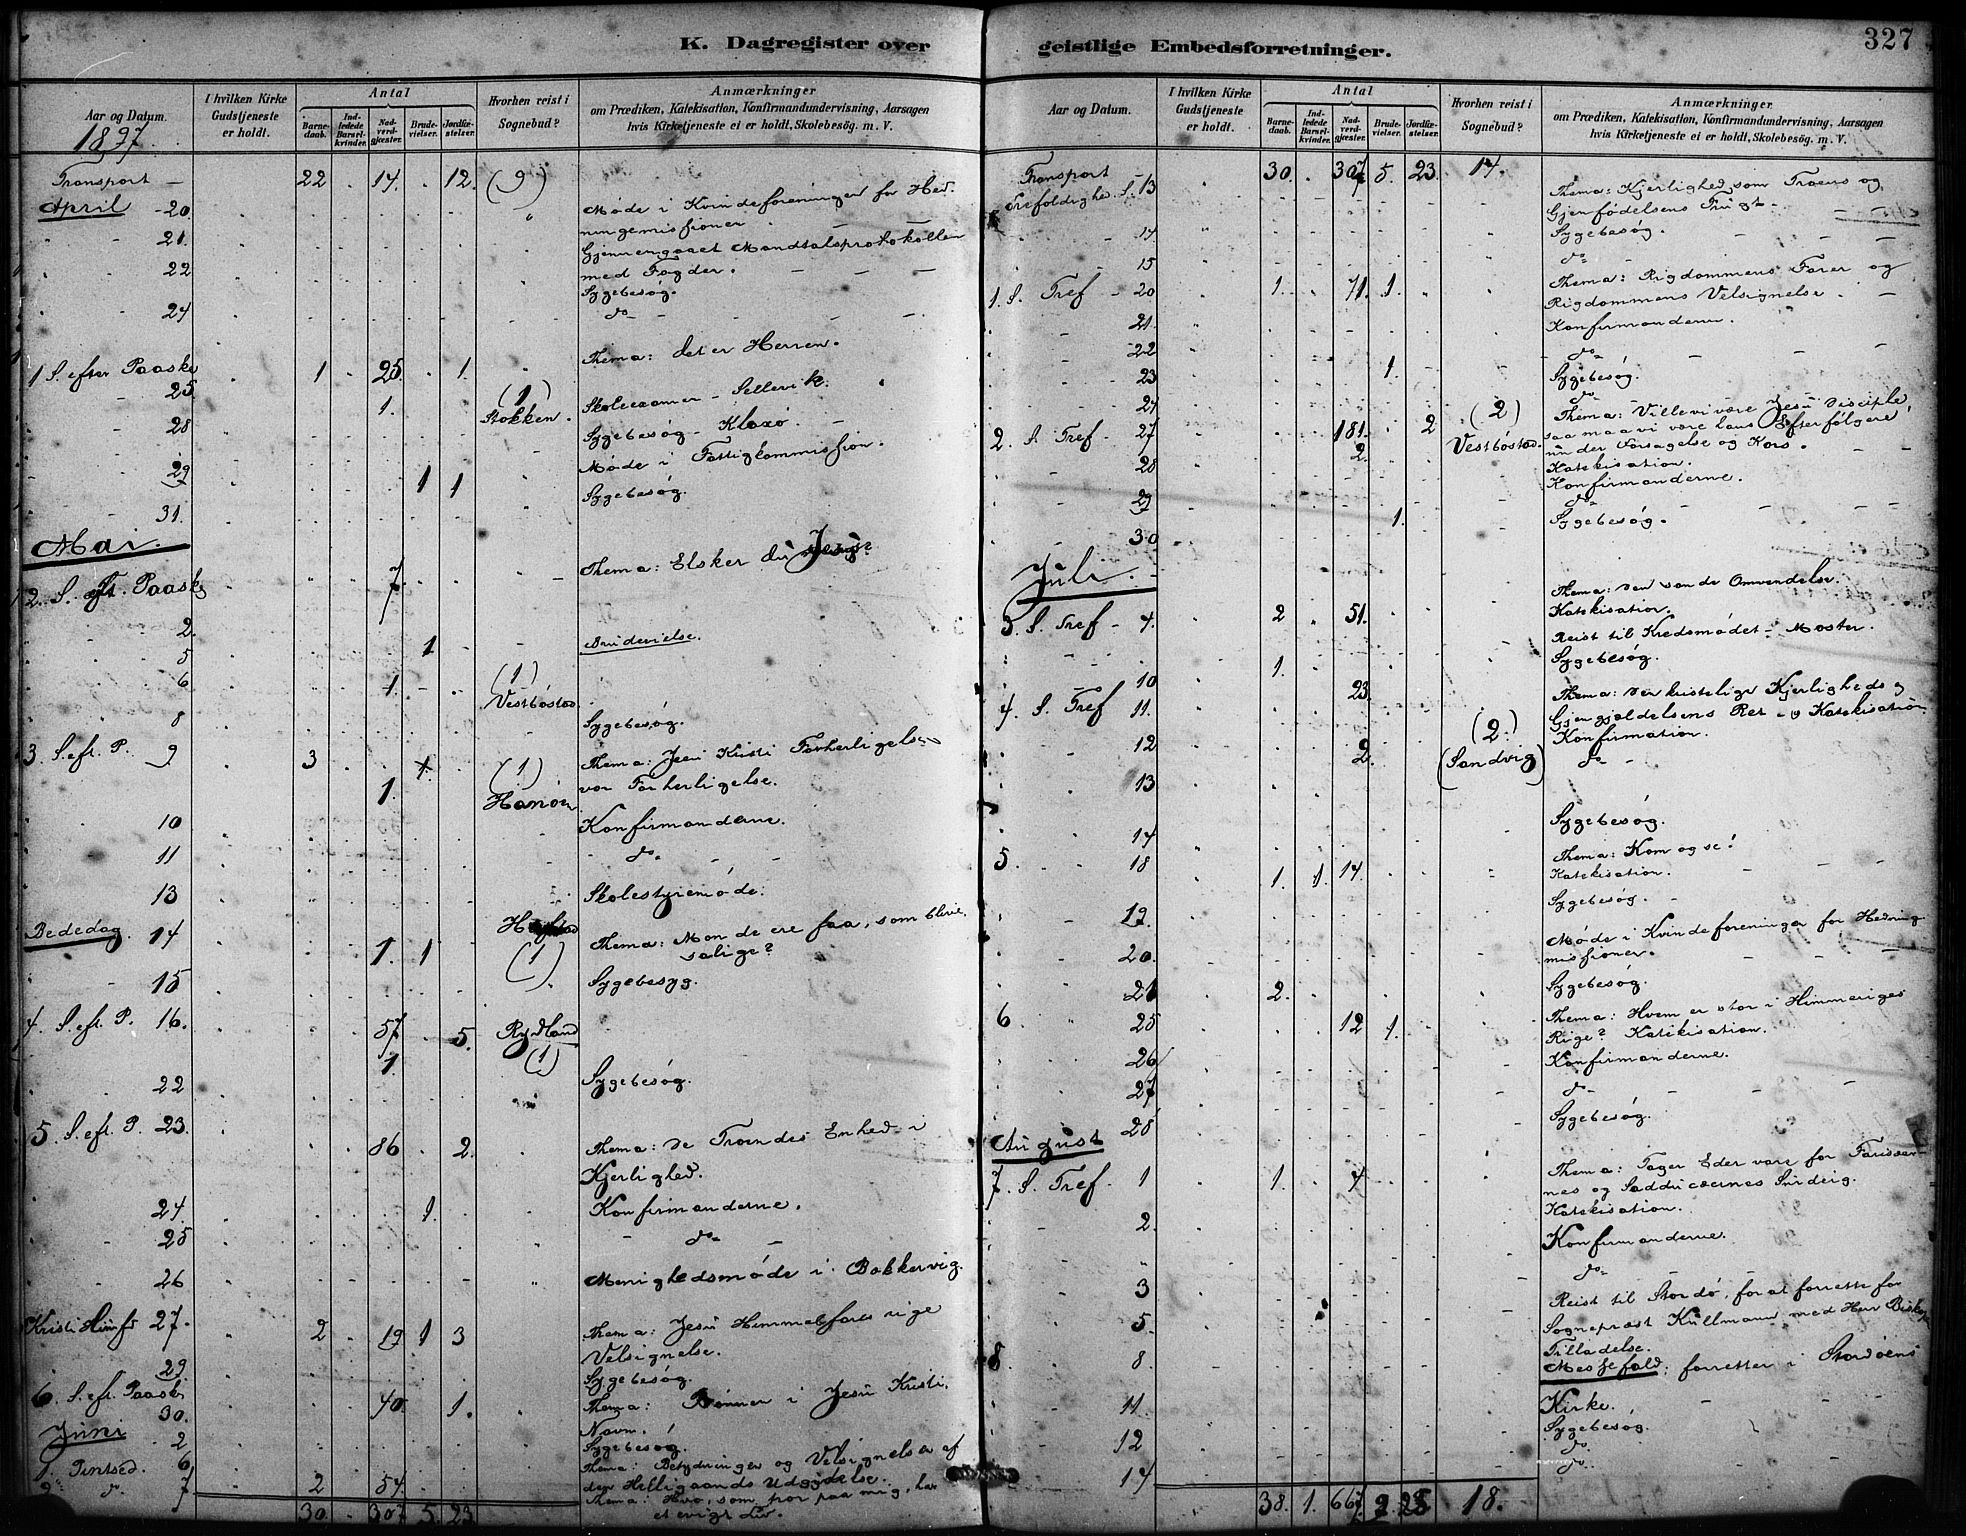 K. Dagregister over geistlige Embedsforretninger.
327
Aar og Datum.
1897.
I hvilken Kirke Gudstjeneste er holdt.
Antal
Barne-daab.
Ind-ledede Barsel-kvinder.
Nad-verd-gjæster.
Brude-vielser.
Jordfæ-stelser.
Hvorhen reist i Sognebud?
Anmærkninger
om Prædiken, Katekisation, Konfirmandundervisning, Aarsagen
hvis Kirketjeneste ei er holdt, Skolebesög. m. V.
Transport - 22 14. 12. (9)
April - 20. Møde i Kvindeforeninger for Hed-
ningemissioner.
21. Gjennemgaaet Mandtalsprotokollen
med Fogder.
22 Sygebesøg.
24 do
1 S. efter Paaske 25. 1 25. 1. Thema: det er Herren.
1. (1) Stokken. Skoleexamen - Sellevik.
28 Sygebesøg - Kloxö.
29 1 1 Møde i Fattigkommission.
31. Sygebesøg.
Mai.
2. S. eft. Paaske 2. 7 Thema: Elsker du Jesus?
5 1 Brudevielse.
6 1. (1) Vestbøstad
8 Sygebesøg.
3 S. eft. P. 9 3 1. (1) Thema: Jesu Kristi Forherligelse
1. Hanøen vor Forherligelse.
10 Konfirmanderne.
11 do
13 Skolestyremøde.
Bededag. 14 1. 1 (1) Thema: Mon de ere faa, som blive
salige?
15 Sygebesyg.
4. S. eft. P. 16. 57 5. Rydland
1. (1)
22 Sygebesøg.
5. S. eft. P. 23. 86 2. Thema: De Troendes Enhed i
Kjerlighed.
24 1. Konfirmanderne.
25 do
26 Menighedsmøde i Bakkervig.
Kristi Himf 27. 2 19 1 3 Thema: Jesu Himmelfares rige
Velsignelse.
29 Sygebesøg.
6. S. eft. Paaske 30. 40. 1. Thema: Bønner i Jesu Kristi
Navn.
Juni 2 Sygebesøg.
1. Pintsed. 6. Thema: Betydningen og Velsignelse af
den Helligaands Udgydelse.
2. do. 7 2 54. Thema: Hvo, som tror paa mig, har
et evigt Liv.
30. 307 5. 23
Aar og Datum.
I hvilken Kirke Gudstjeneste er holdt.
Antal
Barne-daab.
Ind-ledede Barsel-kvinder.
Nad-verd-gjæster.
Brude-vielser.
Jordfæ-stelser.
Hvorhen reist i Sognebud?
Anmærkninger
om Prædiken, Katekisation, Konfirmandundervisning, Aarsagen
hvis Kirketjeneste ei er holdt, Skolebesög. m. V.
Transport 30. 307 5. 23. 14.
Trefoldighed. S. 13 Thema: Kjerlighed som Troens og
Gjenfødelsens Frugt.
14 Sygebesøg.
15 do
1. S. Tref - 20 1. 71. 1. Thema: Rigdommens Farer og
Rigdommens Velsignelse.
21. Konfirmanderne.
22 do
23 1. Sygebesøg.
24 do
2. S. Tref - 27 181. 2 (2) Thema: Ville vi være Jesu Disciple,
2. Vestbøstad. saa maa vi være hans Efterfølgere
under Forsagelse og Kors.
Katekisation.
28 Konfirmanderne.
29 1. do
30 Sygebesøg.
Juli.
3. S. Tref - 4. 2 51. Thema: Den sande Omvendelse.
Katekisation.
1. Reist til Kredsmødet - Moster.
10 Sygebesøg.
4. S. Tref 11. 23. Thema: Den kristelige Kjerligheds og
Gjengjældelsens Ret - og Katekisation
12 2. (2.) Konfirmation.
13 (Sandvig) do
14 Sygebesøg.
5. 18 1. 1. 14. Thema: Kom og se!
Katekisation.
19. Sygebesøg.
20. Møde i Kvindeforeninger for Hedning-
missioner.
21 2. Sygebesøg.
6 25 12 1. Thema: Hvem er stor i Himmeriges
Rige? Katekisation.
26 Konfirmanderne.
27 do
28 Sygebesøg.
August
7. S. Tref. 1 1. 4 Thema: Tager Eder vare for Farisæer-
nes og Sadducæernes Surdeig.
Katekisation.
2. Konfirmanderne.
3 do
5. Reist til Stordø, for at forrette for
Sognepræst Kullmann med Herr Biskop
Tilladelse.
8 8. Messefald, forretter i Stordøens
Kirke.
11. Sygebesøg.
12 do
14 do
38. 1. 667. 25 18.